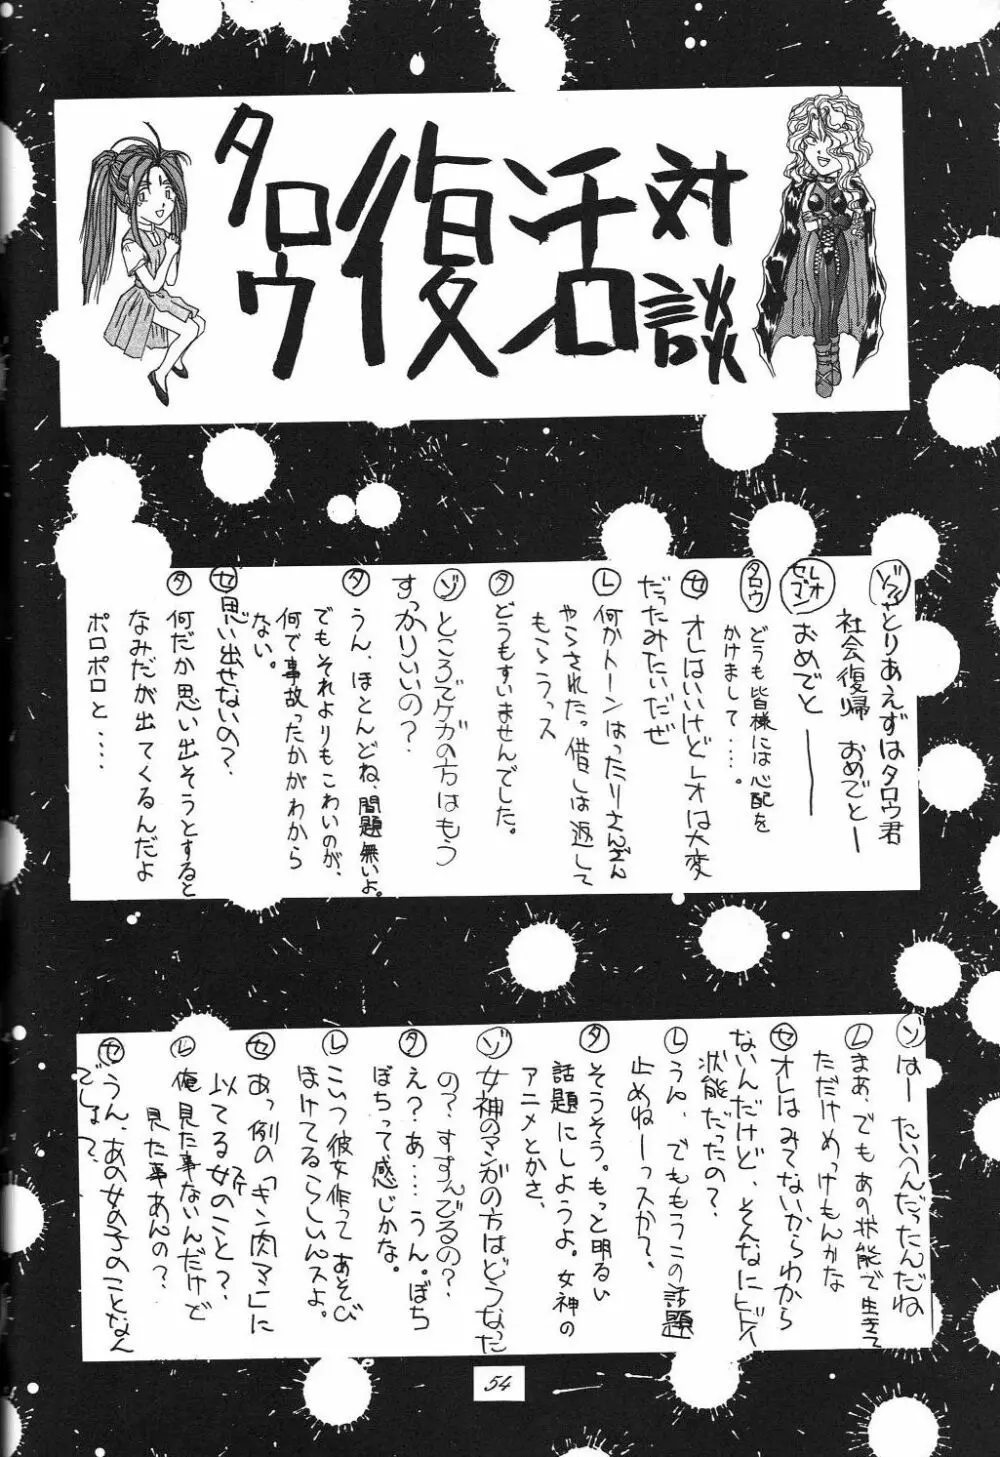 タロウ復活対談
ゾィとりあえずはタロウ君
社会復帰 おめでとー
レオ
セブマン
おめでとーーー
タロウ どうも皆様には心配を
かけまして‥‥。
セ オレはいいけどレオは大変
だったみたいだぜ
レ 何かトーンはったりさんざん
やらされた。借しは返して
もらうっス
タ どうもすいませんでした。
ゾ ところでケガの方はもう
すっかりいいの?
タ うん、ほとんどね、問題無いよ。
でもそれよりもこわいのが、
何で事故ったかがわから
ない。
セ 思い出せないの?
タ 何だか思い出そうとすると
なみだが出てくるんだよ
ポロポロと‥‥
ゾ はーたいへんだったんだね
レ まあ、でもあの状態で生きて
ただけめっけもんかな
セ オレはみてないからわから
ないんだけど、そんなにヒドイ
状態だったの?
レ うん、でももうこの話題
止めねーっスか?
タ そうそう。もっと明るい
話題にしようよ。女神の
アニメとかさ、
ゾ 女神のマンガの方はどうなった
の?すすんでるの?
タ え?あ‥‥うん。ぼち
ぼちって感じかな。
レ こいつ彼女作って あそび
ほけてるらしいんスよ。
セ あっ例の「キン肉マン」に
以てる女のこと?
レ 俺見た事ないんだけど
見た事あんの?
セ うん、あの女の子のことなん
でしょ?
54